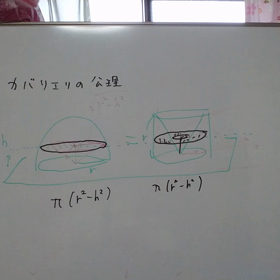 カバリエリの公理
h
r
=
r
π(r²-h²)
π(r²-h²)